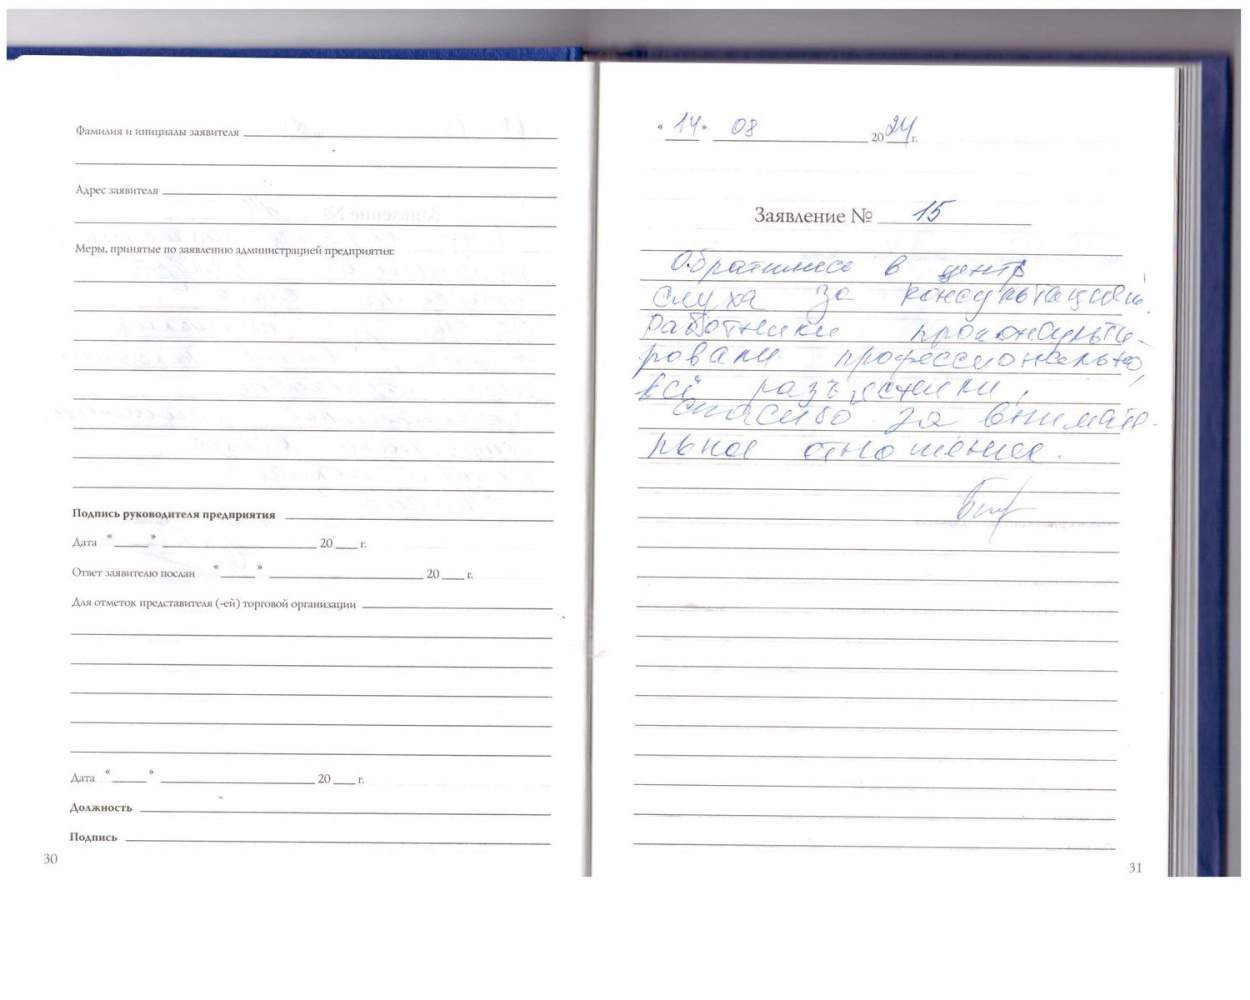 Фамилия и инициалы заявителя
Адрес заявителя
Меры, принятые по заявлению администрацией предприятия:
Подпись руководителя предприятия
Дата « » 20 г.
Ответ заявителю послан « » 20 г.
Для отметок представителя (-ей) торговой организации
Дата « » 20 г.
Должность
Подпись
30
« 14 » 08 20 24 г.
Заявление № 15
Обратились в центр
слуха за консультацией.
Работники проконсульти-
ровали профессионально,
всё разъяснили,
спасибо за внимате-
льное отношение.
31